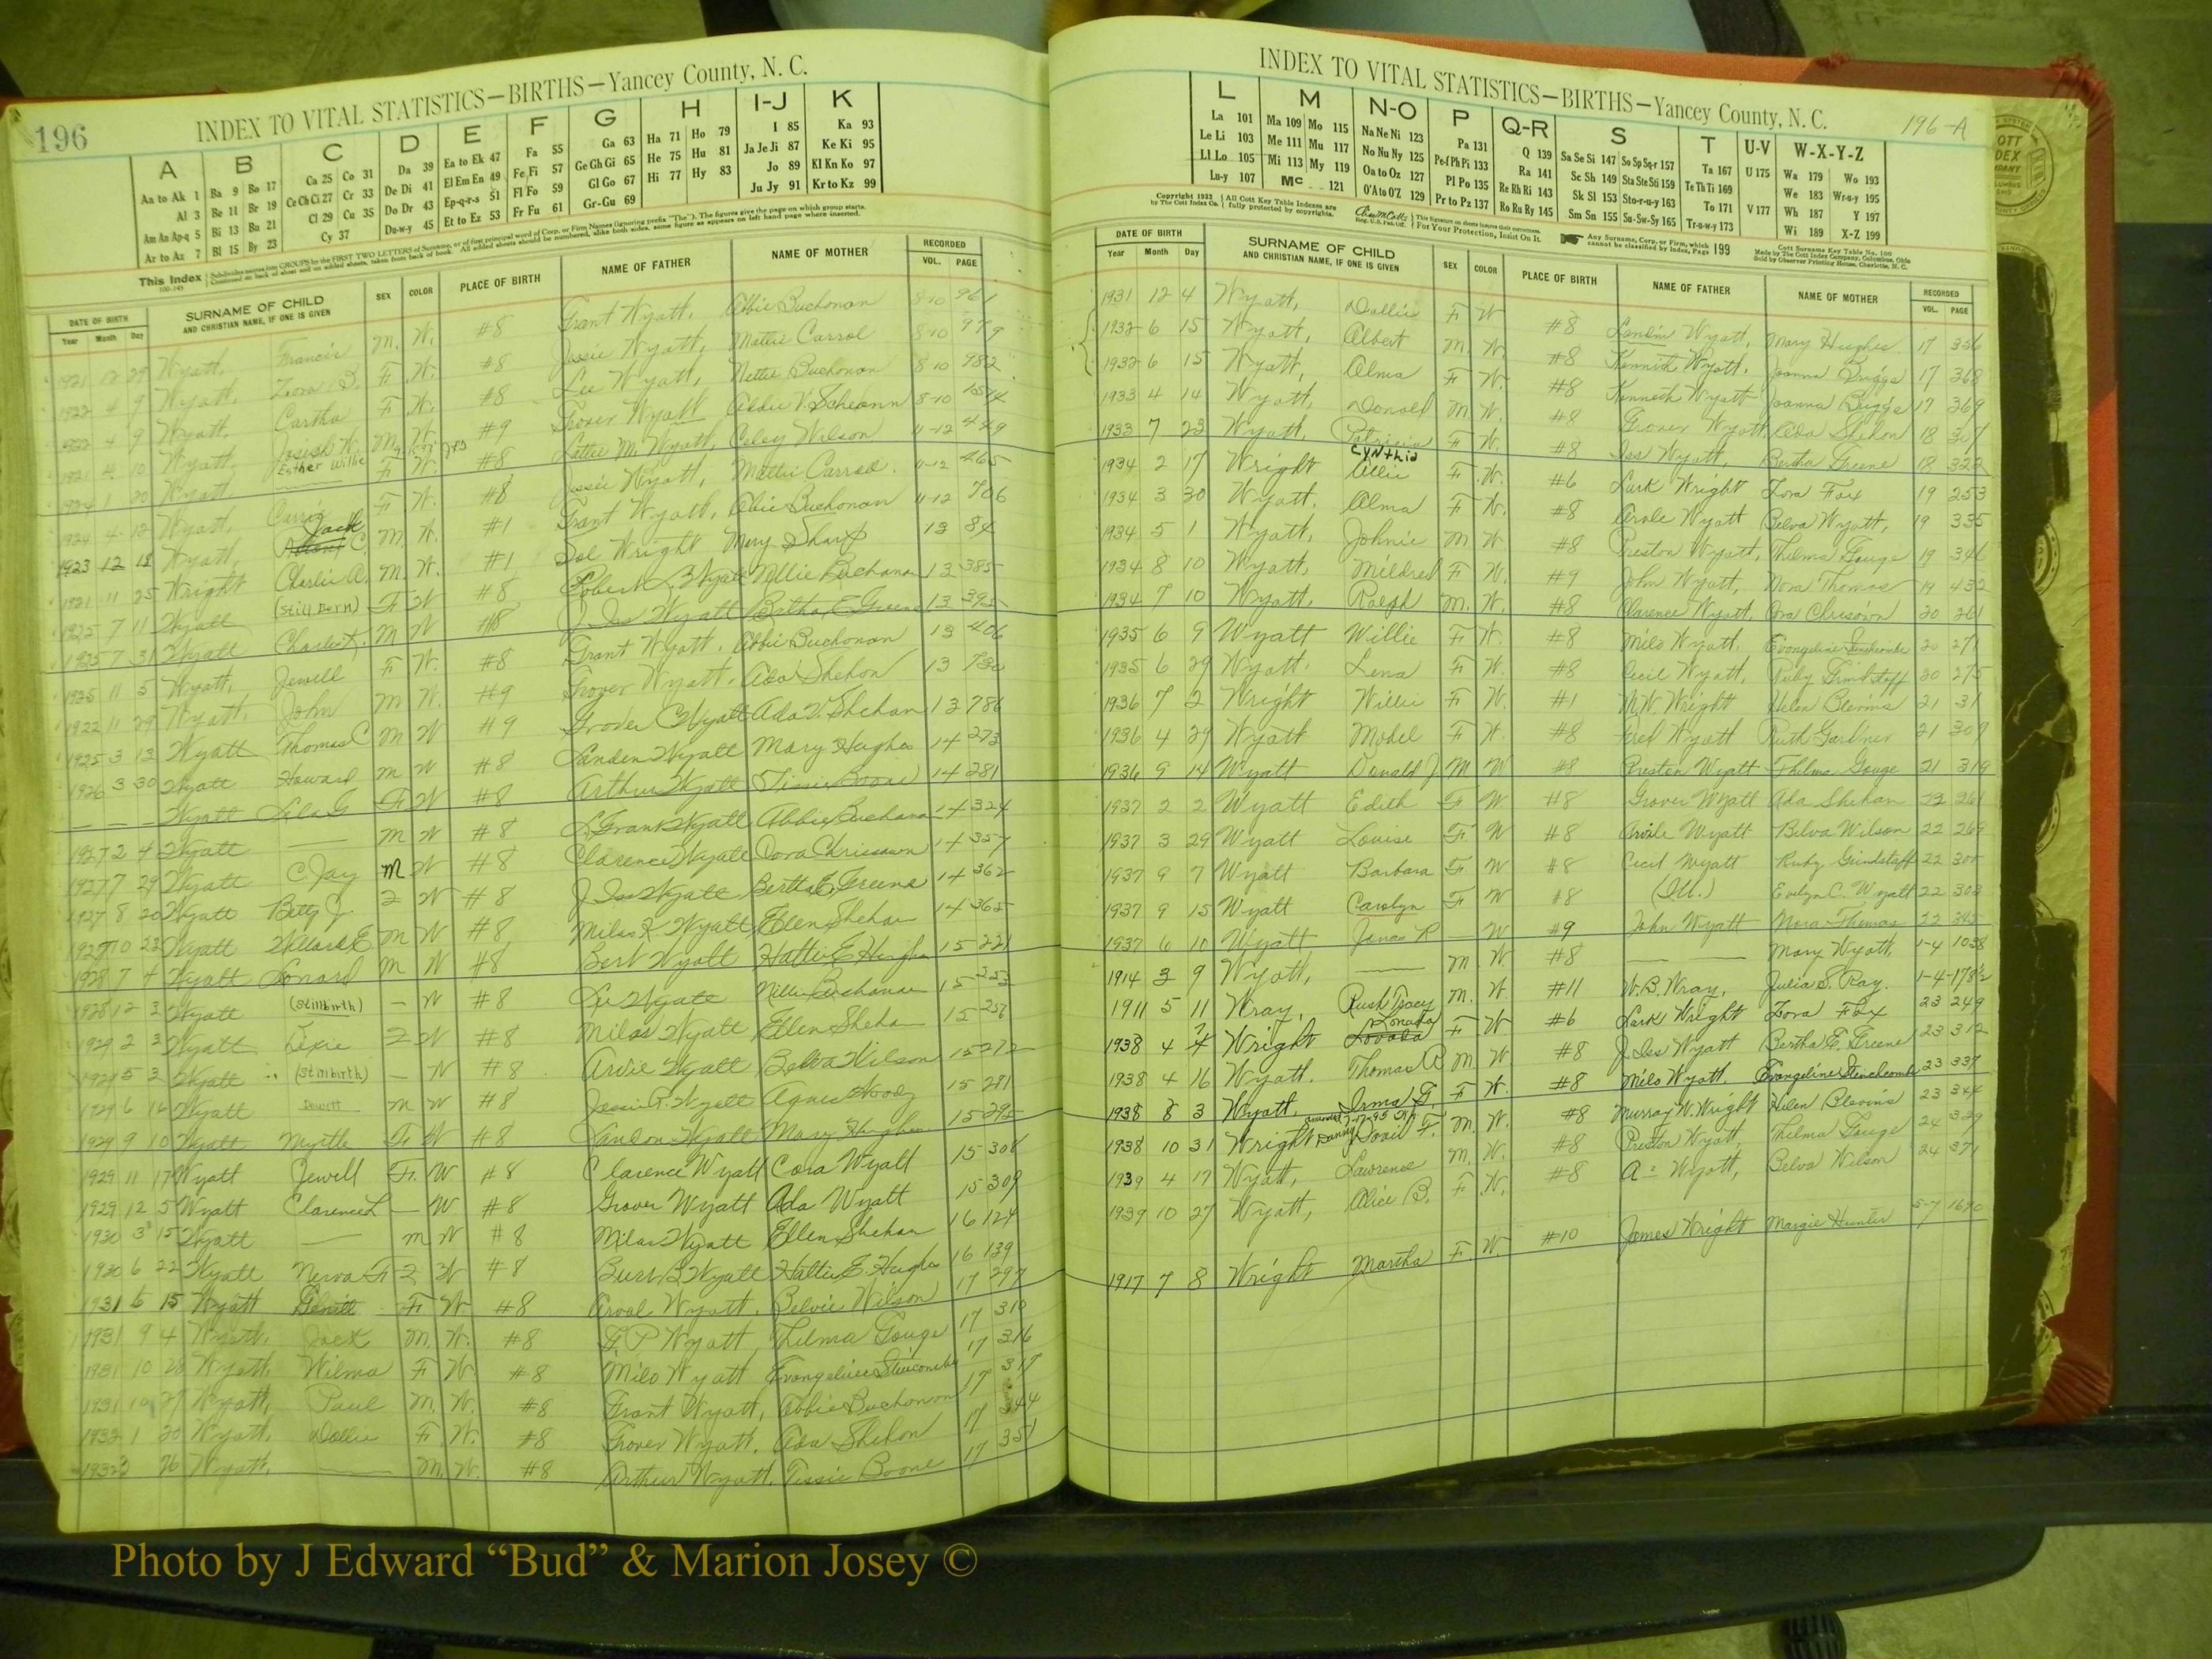 196
INDEX TO VITAL STATISTICS—BIRTHS—Yancey County, N. C.
A B C D E F G H I-J K
Aa to Ak 1 Ba 9 Bo 17 Ca 25 Co 31 Da 39 Ea to Ek 47 Fa 55 Ga 63 Ha 71 Ho 79 I 85 Ka 93
Al 3 Be 11 Br 19 Ce Ch Ci 27 Cr 33 De Di 41 El Em En 49 Fe Fi 57 Ge Gh Gi 65 He 75 Hu 81 Ja Je Ji 87 Ke Ki 95
Am An Ap-q 5 Bi 13 Bu 21 Cl 29 Cu 35 Do Dr 43 Ep-q-r-s 51 Fl Fo 59 Gl Go 67 Hi 77 Hy 83 Jo 89 Kl Kn Ko 97
Ar to Az 7 Bl 15 By 23 Cy 37 Du-w-y 45 Et to Ez 53 Fr Fu 61 Gr-Gu 69 Ju Jy 91 Kr to Kz 99
This Index
DATE OF BIRTH SURNAME OF CHILD AND CHRISTIAN NAME, IF ONE IS GIVEN SEX COLOR PLACE OF BIRTH NAME OF FATHER NAME OF MOTHER RECORDED
Year Month Day VOL. PAGE
1921 12 29 Wyatt, Francis M. W. #8 Grant Wyatt, Abbie Buchanan 8-10 961
1922 4 9 Wyatt, Zora B. F. W. #8 Jessie Wyatt, Mattie Carrol 8-10 979
1922 4 9 Wyatt, Cartha F. W. #8 Lee Wyatt, Nettie Buchanan 8-10 982
1921 4 10 Wyatt, Joseph W. M. W. #9 Grover Wyatt 8-10
1924 1 20 Wyatt Esther Willie F. W. #8 Lattie M. Wyatt, Wilson 11-12 449
1924 4 12 Wyatt, Carrie F. W. #8 Jessie Wyatt, Mattie Carrol. 11-12 465
1923 12 18 Wyatt, Jack C. M. W. #1 Grant Wyatt, Abie Buchanan 11-12 706
1921 11 25 Wright Charlie A. M. W. #1 Sol Wright Mary Sharp 13 84
1925 7 11 Wyatt (Still Born) F W #8 Robert L. Wyatt Nellie Buchanan 13 385
1925 7 31 Wyatt M W #8 J. Iss Wyatt Bertha E. Greene 13 395
1925 11 5 Wyatt, Jewell F. W. #8 Grant Wyatt. Abbie Buchanan 13 406
1922 11 29 Wyatt, John M W. #9 Grover Wyatt. Ada Shehan 13 730
1925 3 13 Wyatt Thomas C M W #9 Grover C Wyatt Ada V. Shehan 13 786
1926 3 30 Wyatt Howard M W #8 Landen Wyatt Mary Hughes 14 273
— — — Wyatt Lila G F W #8 Arthur Wyatt Tissie Boone 14 281
1927 2 4 Wyatt — M W #8 L. Grant Wyatt Abbie Buchanan 14 324
1927 7 29 Wyatt C Jay M W #8 Clarence Wyatt Cora Chrisawn 14 357
1927 8 20 Wyatt Betty J. F W #8 J Iss Wyatt Bertha E. Greene 14 362
1927 10 23 Wyatt Willard E M W #8 Milas R Wyatt Ellen Shehan 14 365
1928 7 4 Wyatt Lonard M W #8 Bert Wyatt Hattie E Hughes 15 221
1928 12 3 Wyatt (Stillbirth) — W #8 Lee Wyatt Nellie Buchanan 15 253
1929 2 3 Wyatt Dixie F W #8 Milas Wyatt Ellen Shehan 15 256
1929 5 3 Wyatt (Stillbirth) — W #8 Arvie Wyatt Belva Wilson 15 272
1929 6 14 Wyatt M W #8 Jessie R. Wyatt Agnes Woody 15 281
1929 9 10 Wyatt Myrtle F W #8 Landon Wyatt Mary Hughes 15 295
1929 11 17 Wyatt Jewell F. W #8 Clarence Wyatt Cora Wyatt 15 308
1929 12 5 Wyatt Clarence L — W #8 Grover Wyatt Ada Wyatt 15 309
1930 3 15 Wyatt — M W #8 Milas Wyatt Ellen Shehan 16 124
1930 6 22 Wyatt Nerva F W #8 Burt B Wyatt Hattie E. Hughes 16 139
1931 6 15 Wyatt F W. #8 Arval Wyatt. Belvie Wilson 17 297
1931 9 4 Wyatt. Jack M. W. #8 G. P Wyatt, Thelma Gouge 17 310
1931 10 28 Wyatt. Wilma F W. #8 Milo Wyatt Evangeline 17 316
1931 10 27 Wyatt, Paul M. W. #8 Grant Wyatt, Abbie Buchanan 17 317
1932 1 20 Wyatt, Dollie F. W. #8 Grover Wyatt, Ada Shehan 17 344
1932 2 26 Wyatt, — M. W. #8 Arthur Wyatt, Tissie Boone 17 351
INDEX TO VITAL STATISTICS—BIRTHS—Yancey County, N. C. 196-A
L M N-O P Q-R S T U-V W-X-Y-Z
La 101 Ma 109 Mo 115 Na Ne Ni 123 Pa 131 Q 139 Sa Se Si 147 So Sp Sq-r 157 Ta 167 U 175 Wa 179 Wo 193
Le Li 103 Me 111 Mu 117 No Nu Ny 125 Pe-f Ph Pi 133 Ra 141 Sc Sh 149 Sta Ste Sti 159 Te Th Ti 169 We 183 Wr-u-y 195
Ll Lo 105 Mi 113 My 119 Oa to Oz 127 Pl Po 135 Re Rh Ri 143 Sk Sl 153 Sto-r-u-y 163 To 171 V 177 Wh 187 Y 197
Lu-y 107 Mc 121 O'A to O'Z 129 Pr to Pz 137 Ro Ru Ry 145 Sm Sn 155 Su-Sw-Sy 165 Tr-u-w-y 173 Wi 189 X-Z 199
Copyright 1932 by The Cott Index Co. All Cott Key Table Indexes are fully protected by copyrights. For Your Protection, Insist On It. Any Surname, Corp. or Firm, which cannot be classified by Index, Page 199
DATE OF BIRTH SURNAME OF CHILD AND CHRISTIAN NAME, IF ONE IS GIVEN SEX COLOR PLACE OF BIRTH NAME OF FATHER NAME OF MOTHER RECORDED
Year Month Day VOL. PAGE
1931 12 4 Wyatt, Dollie F W #8 Landin Wyatt, Mary Hughes 17 336
1932 6 15 Wyatt, Albert M W. #8 Kenneth Wyatt. Joanna 17 368
1932 6 15 Wyatt, Alma F W. #8 Kenneth Wyatt Joanna 17 369
1933 4 14 Wyatt, Donald M W. #8 Grover Wyatt, Ada Shehon 18 307
1933 7 23 Wyatt, Patricia F W. #8 Iss Wyatt, Bertha Greene 18 322
1934 2 17 Wright Cynthia Allie F. W. #6 Lark Wright Zora Fox 19 253
1934 3 30 Wyatt. Alma F W. #8 Arvle Wyatt Belva Wyatt, 19 335
1934 5 1 Wyatt, Johnie M W #8 Preston Wyatt, Thelma Gouge 19 346
1934 8 10 Wyatt, Mildred F W. #9 John Wyatt, Nora Thomas 19 432
1934 7 10 Wyatt, Ralph M. W. #8 Clarence Wyatt, Ora Chrisawn 20 261
1935 6 9 Wyatt Willie F W. #8 Milo Wyatt. Evangeline 20 271
1935 6 29 Wyatt. Lena F W. #8 Cecil Wyatt, Ruby Grindstaff 20 275
1936 7 2 Wright Willie F W. #1 M.W. Wright Helen Blevins 21 31
1936 4 29 Wyatt Mabel F W. #8 Fred Wyatt Ruth Gardner 21 309
1936 9 14 Wyatt Donald J M W #8 Preston Wyatt Thelma Gouge 21 319
1937 2 2 Wyatt Edith F W. #8 Grover Wyatt Ada Shehan 22 261
1937 3 29 Wyatt Louise F. W #8 Arvile Wyatt Belva Wilson 22 269
1937 9 7 Wyatt Barbara F W #8 Cecil Wyatt Ruby Grindstaff 22 300
1937 9 15 Wyatt Carolyn F W #8 (Ill.) Evelyn C. Wyatt 22 303
1937 6 10 Wyatt James R — W #9 John Wyatt Nora Thomas 22 345
1914 3 9 Wyatt, — M. W #8 — — Mary Wyatt, 1-4 1038
1911 5 11 Wray, Rush Tracy M. W. #11 W. B. Wray, Julia S. Ray. 1-4-178½
1938 4 4 Wright F W #6 Lark Wright Zora Fox 23 249
1938 4 16 Wyatt. Thomas R M W #8 J. Iss Wyatt Bertha E. Greene 23 312
1938 8 3 Wyatt. Irma G. F W. #8 Milo Wyatt. Evangeline Stenchcomb 23 337
1938 10 31 Wright Danny David F. M. W. #8 Murray W. Wright Helen Blevins 23 344
1939 4 17 Wyatt, Lawrence M. W. #8 Preston Wyatt, Thelma Gouge 24 329
1939 10 27 Wyatt, Alice B. F. W. #8 A= Wyatt, Belva Wilson 24 371
1917 7 8 Wright Martha F W. #10 James Wright Margie Hunter 5-7 1690
Photo by J Edward “Bud” & Marion Josey ©